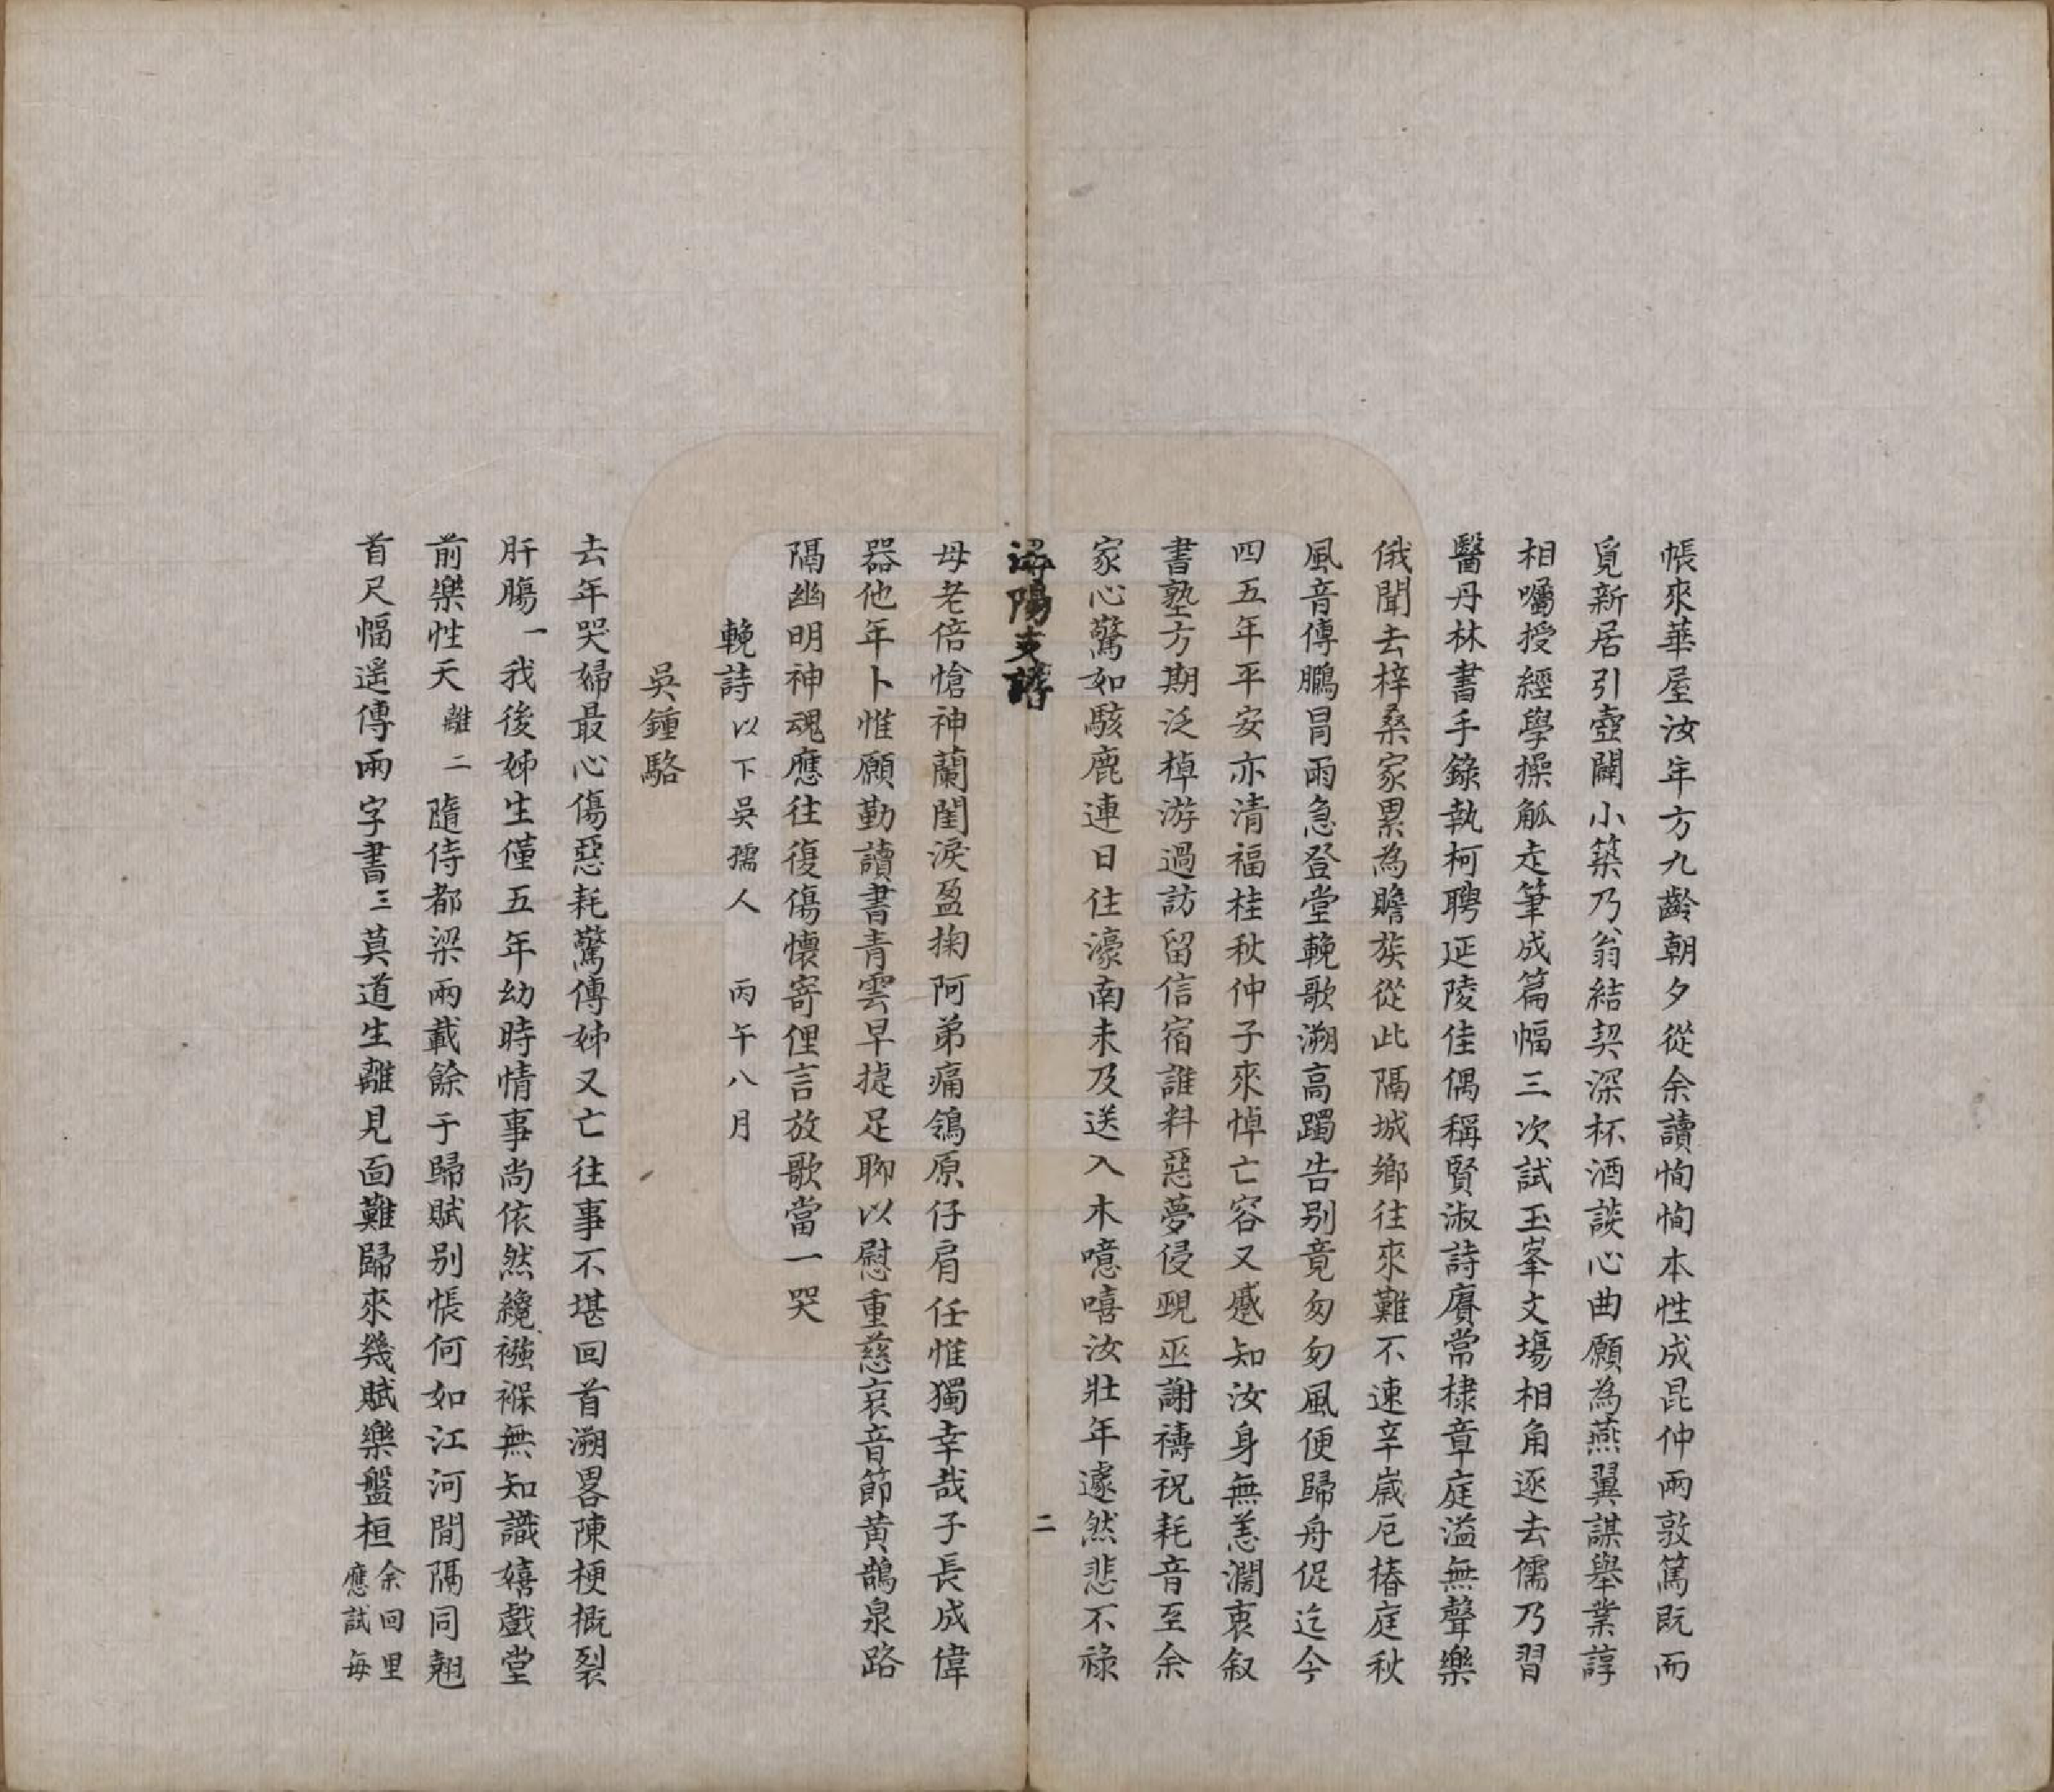 帳來華屋汝年方九齡朝夕從余讀恂恂本性成昆仲兩敦篤既而
覓新居引壺闢小築乃翁結契深杯酒談心曲願為燕翼謀舉業諄
相囑授經學操觚走筆成篇幅三次試玉峯文塲相角逐去儒乃習
醫丹林書手錄執柯聘延陵佳偶稱賢淑詩賡常棣章庭溢無聲樂
俄聞去梓桑家累為贍族從此隔城鄉往來難不速辛歲厄椿庭秋
風音傳鵩冒雨急登堂輓歌溯高躅告别竟匆匆風便歸舟促迄今
四五年平安亦清福桂秋仲子來悼亡容又慼知汝身無恙濶衷叙
書塾方期泛棹游過訪留信宿誰料惡夢侵覡巫謝禱祝耗音至余
家心驚如駭鹿連日住濠南未及送入木噫嘻汝壯年遽然悲不祿
潯陽支譜
二
母老倍愴神蘭閨淚盈掬阿弟痛鴒原仔肩任惟獨幸哉子長成偉
器他年卜惟願勤讀書青雲早捷足聊以慰重慈哀音節黄鵠泉路
隔幽明神魂應往復傷懷寄俚言放歌當一哭
輓詩 以下吳孺人 丙午八月
吳鍾駱
去年哭婦最心傷惡耗驚傳姊又亡往事不堪回首溯畧陳梗概裂
肝腸一我後姊生僅五年幼時情事尚依然纔離襁褓無知識嬉戲堂
前樂性天二隨侍都梁兩載餘于歸賦别悵何如江河間隔同翹
首尺幅遥傳兩字書三莫道生離見面難歸來幾賦樂盤桓余回里
應試每